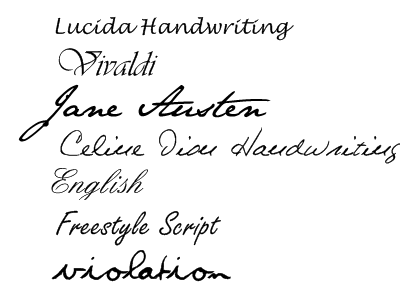 Lucida Handwriting
Vivaldi
Jane Austen
Celine Dion Handwriting
English
Freestyle Script
violation